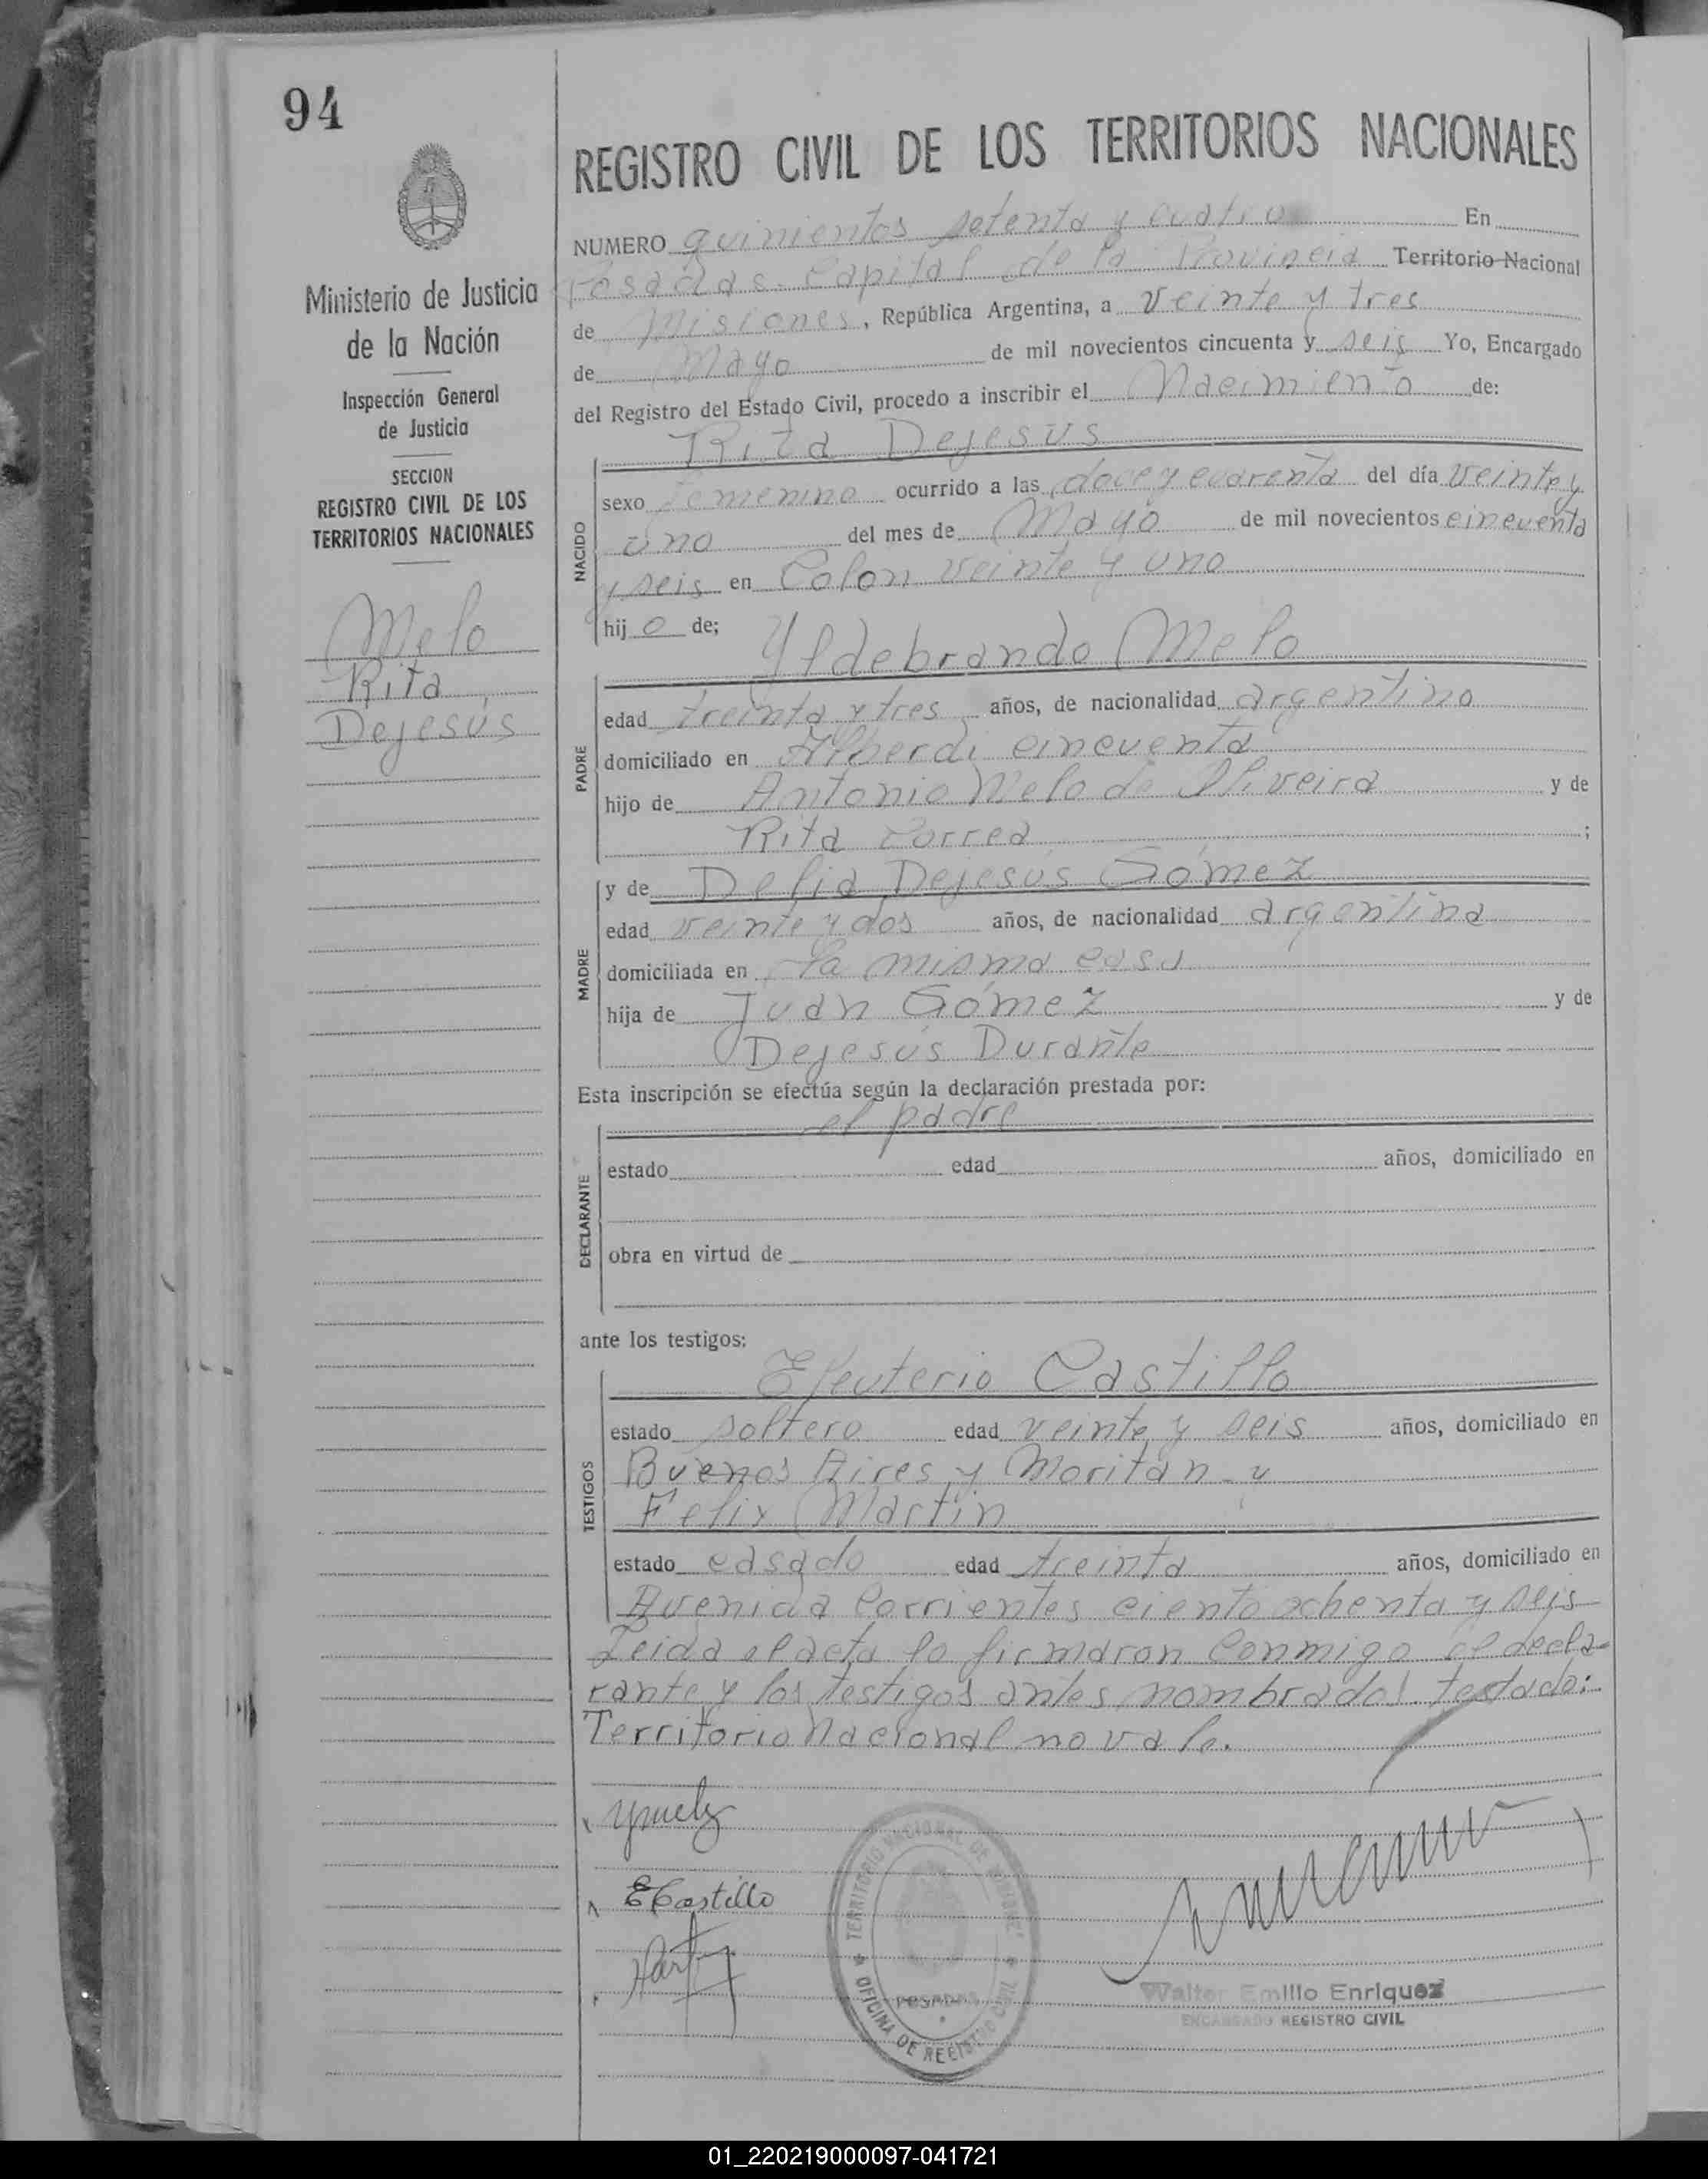 94
REGISTRO CIVIL DE LOS TERRITORIOS NACIONALES
Ministerio de Justicia
de la Nación
Inspección General
de Justicia
SECCION
REGISTRO CIVIL DE LOS
TERRITORIOS NACIONALES
Melo
Rita
Dejesús
NUMERO quinientos setenta y cuatro En
Posadas Capital de la Provincia Territorio Nacional
de Misiones, República Argentina, a veinte y tres
de Mayo de mil novecientos cincuenta y seis Yo, Encargado
del Registro del Estado Civil, procedo a inscribir el Nacimiento de:
Rita Dejesús
NACIDO
sexo femenino ocurrido a las doce y cuarenta del día veinte y
uno del mes de Mayo de mil novecientos cincuenta
y seis en Colon veinte y uno
hij o de;
Yldebrando Melo
PADRE
edad treinta y tres años, de nacionalidad argentino
domiciliado en Alberdi cincuenta
hijo de Antonio Melo de Oliveira y de
Rita Correa ;
MADRE
y de Delia Dejesús Gómez
edad veinte y dos años, de nacionalidad argentina
domiciliada en la misma casa
hija de Juan Gómez y de
Dejesús Durante
Esta inscripción se efectúa según la declaración prestada por:
el padre
DECLARANTE
estado edad años, domiciliado en
obra en virtud de
ante los testigos:
Eleuterio Castillo
TESTIGOS
estado soltero edad veinte y seis años, domiciliado en
Buenos Aires y Moritán y
Felix Martin
estado casado edad treinta años, domiciliado en
Avenida Corrientes ciento ochenta y seis
Leida el acta la firmaron conmigo el decla-
rante y los testigos antes nombrados testado:
Territorio Nacional no vale.
ECastillo
TERRITORIO NACIONAL DE MISIONES
POSADAS
OFICINA DE REGISTRO CIVIL
Walter Emilio Enriquez
ENCARGADO REGISTRO CIVIL
01_220219000097-041721